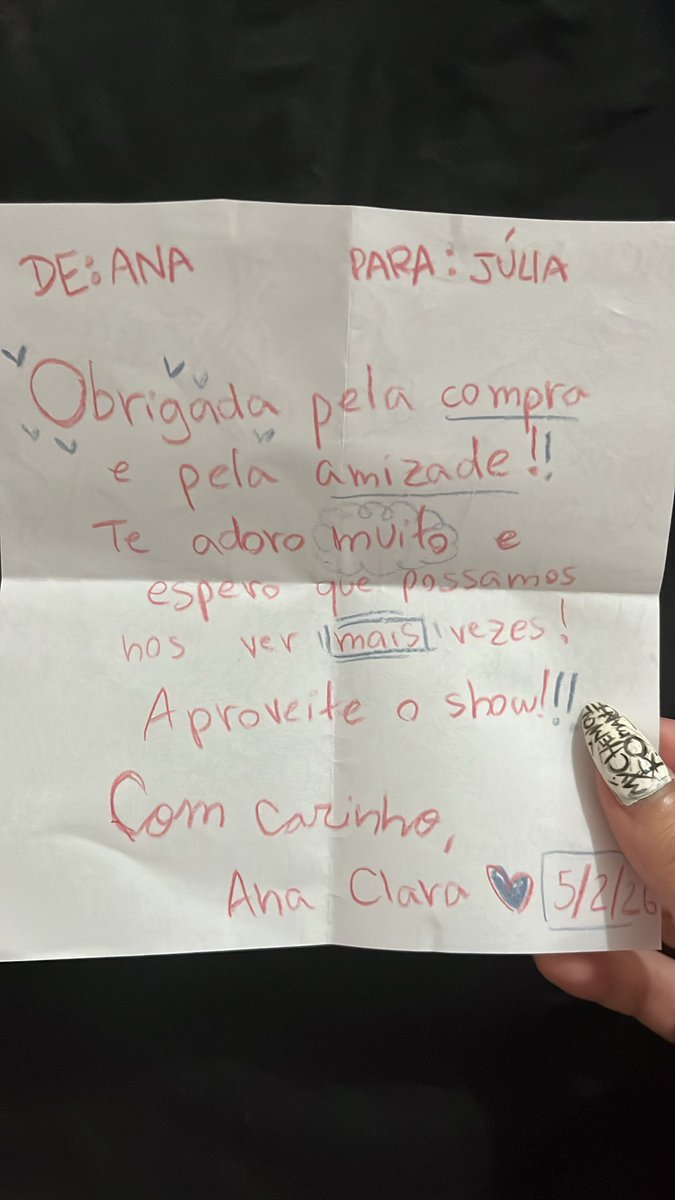 DE: ANA PARA: JÚLIA
Obrigada pela compra
e pela amizade!!
Te adoro muito e
espero que possamos
nos ver "mais" vezes!
Aproveite o show!!!
Com carinho,
Ana Clara 5/2/26